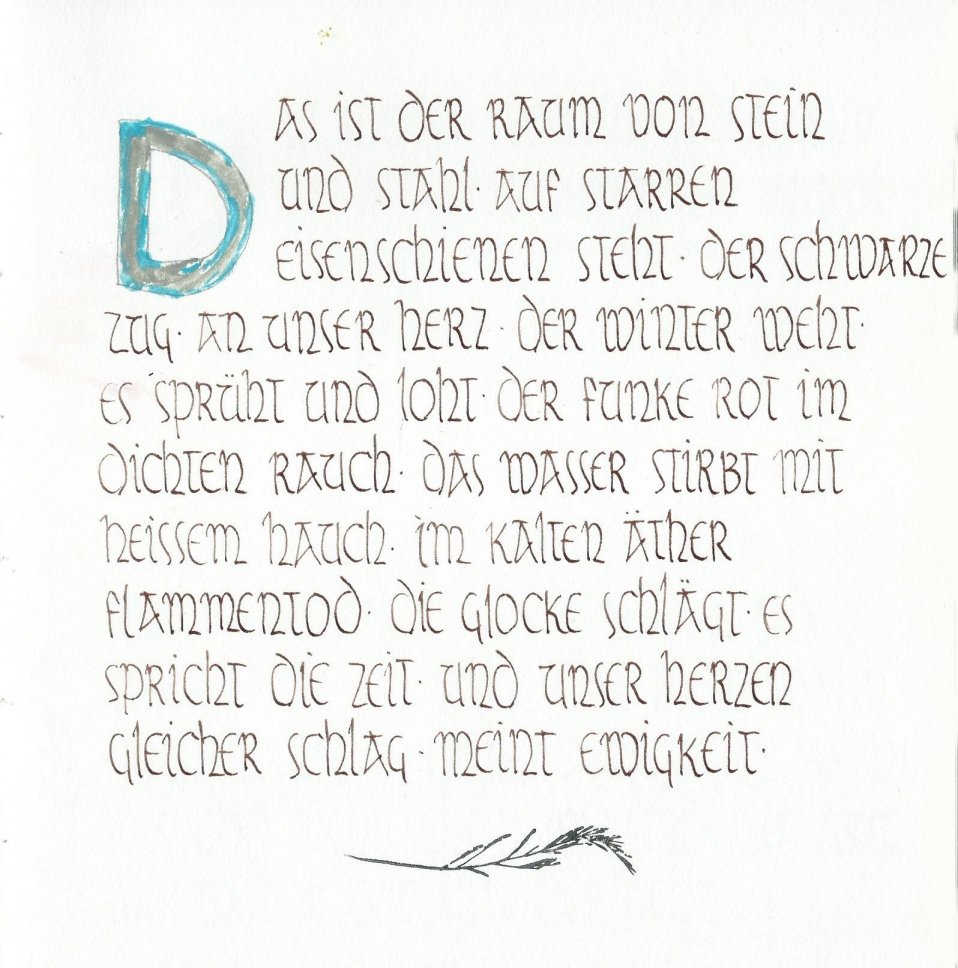 DAS IST DER RAUM VON STEIN
UND STAHL· AUF STARREN
EISENSCHIENEN STEHT· DER SCHWARZE
ZUG· AN UNSER HERZ· DER WINTER WEHT·
ES SPRÜHT UND LOHT· DER FUNKE ROT IM
DICHTEN RAUCH· DAS WASSER STIRBT MIT
HEISSEM HAUCH· IM KALTEN ÄTHER
FLAMMENTOD· DIE GLOCKE SCHLÄGT· ES
SPRICHT DIE ZEIT· UND UNSER HERZEN
GLEICHER SCHLAG· MEINT EWIGKEIT·